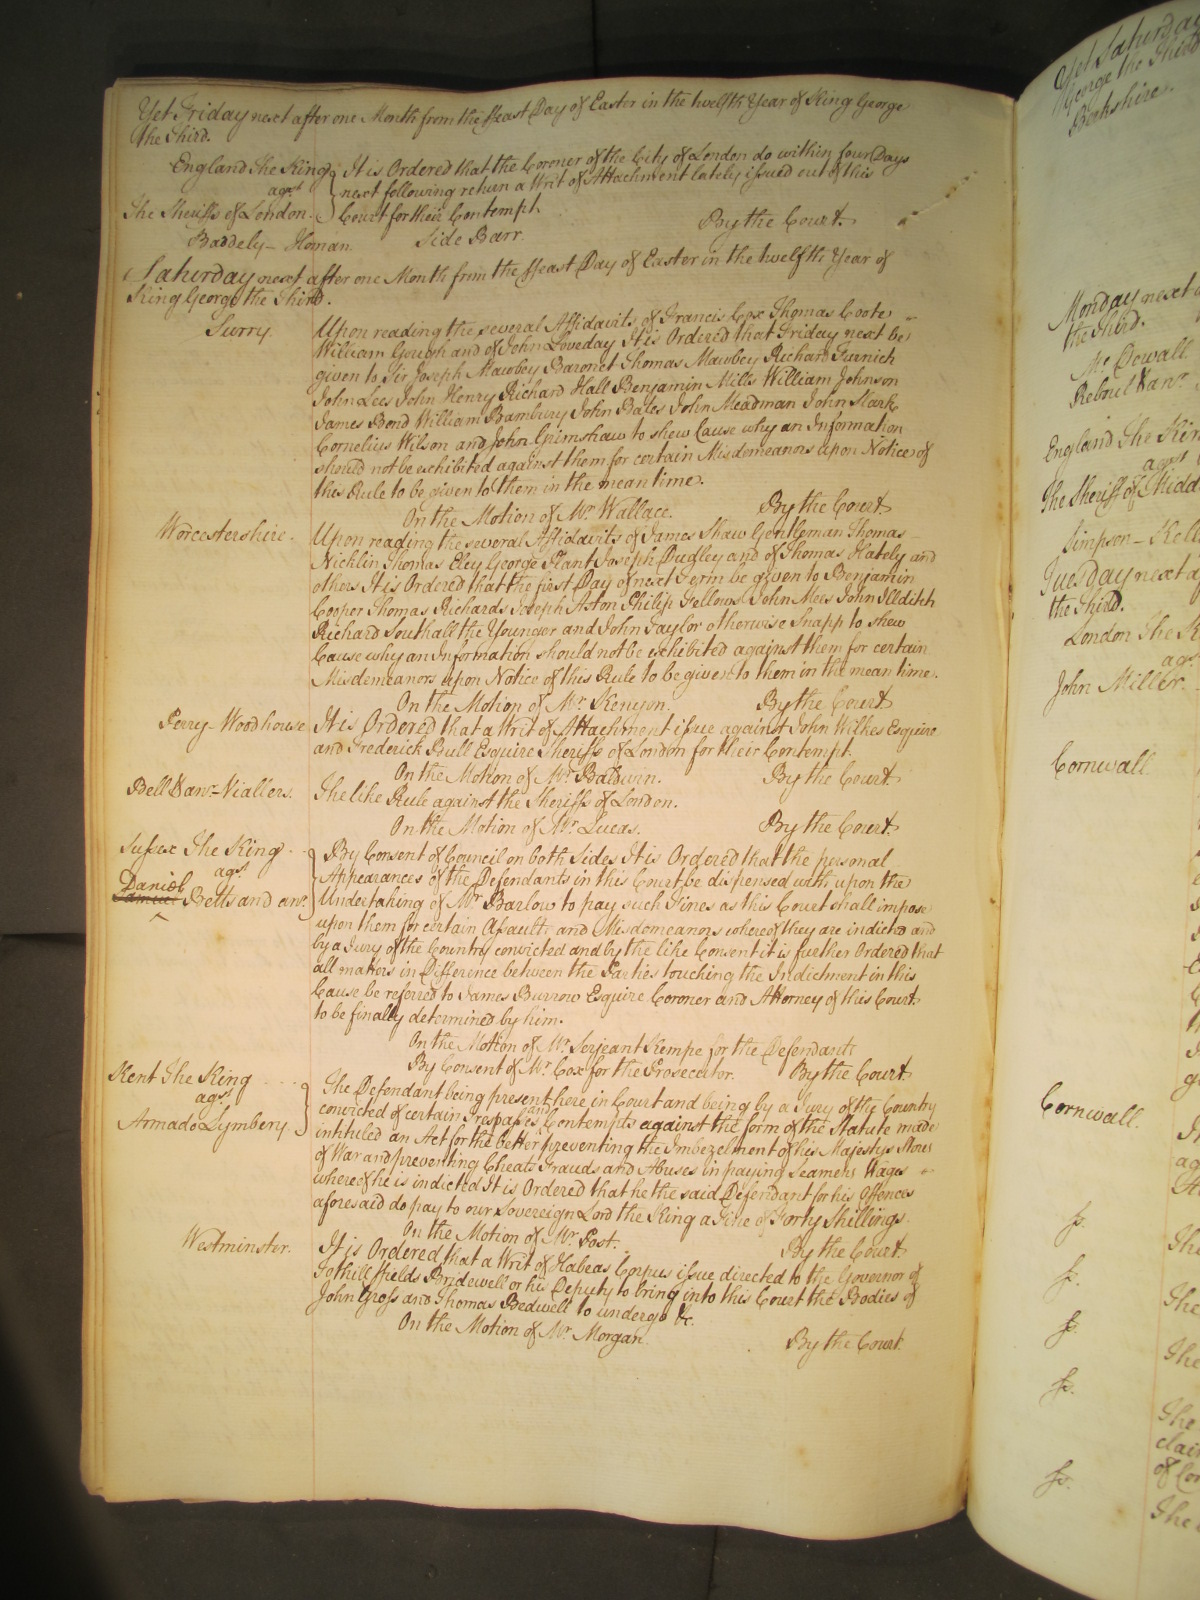 Yet Friday next after one Month from the Feast Day of Easter in the twelfth Year of King George
the Third.
England The King
agst
The Sheriffs of London.
It is Ordered that the Coroner of the City of London do within four Days
next following return a Writ of Attachment lately issued out of this
Court for their Contempt.
By the Court
Baddely - Homan. Side Barr.
Saturday next after one Month from the Feast Day of Easter in the twelfth Year of
King George the Third.
Surry.
Upon reading the several Affidavits of Francis Cox Thomas Coote
William Gough and of John Loveday It is Ordered that Friday next be
given to Sir Joseph Mawbey Baronet Thomas Mawbey Richard Furnich
John Lees John Henry Richard Hall Benjamin Mills William Johnson
James Bond William Bambury John Bales John Meadman John Stark
Cornelius Wilson and John Grimshaw to shew Cause why an Information
should not be exhibited against them for certain Misdemeanors upon Notice of
this Rule to be given to them in the mean time.
On the Motion of Mr. Wallace. By the Court
Worcestershire.
Upon reading the several Affidavits of James Shaw Gentleman Thomas
Nicklin Thomas Eley George Plant Joseph Dudley and of Thomas Hately and
others It is Ordered that the first Day of next Term be given to Benjamin
Cooper Thomas Richards Joseph Aston Philip Fellows John Mees John Illditch
Richard Southall the Younger and John Taylor otherwise Snapp to shew
Cause why an Information should not be exhibited against them for certain
Misdemeanors upon Notice of this Rule to be given to them in the mean time.
On the Motion of Mr. Kenyon. By the Court
Perry - Woodhouse
It is Ordered that a Writ of Attachment issue against John Wilkes Esquire
and Frederick Bull Esquire Sheriffs of London for their Contempt.
On the Motion of Mr. Baldwin. By the Court
Bell & anr. - Viallers.
The like Rule against the Sheriffs of London.
On the Motion of Mr. Lucas. By the Court
Sussex The King
agst
Daniel
Samuel Betts and anr.
By Consent of Council on both Sides It is Ordered that the personal
Appearances of the Defendants in this Court be dispensed with upon the
Undertaking of Mr. Barlow to pay such Fines as this Court shall impose
upon them for certain Assaults and Misdemeanors whereof they are indicted and
by a Jury of the Country convicted and by the like Consent it is further Ordered that
all matters in Difference between the Parties touching the Indictment in this
Cause be referred to James Burrow Esquire Coroner and Attorney of this Court
to be finally determined by him.
On the Motion of Mr. Serjeant Kempe for the Defendants
By Consent of Mr. Cox for the Prosecutor. By the Court
Kent The King
agst
Armado Lymbery.
The Defendant being present here in Court and being by a Jury of the Country
convicted of certain Trespasses and Contempts against the form of the Statute made
intituled an Act for the better preventing the Imbezelment of his Majestys Stores
of War and preventing Cheats Frauds and Abuses in paying Seamens Wages
whereof he is indicted It is Ordered that he the said Defendant for his Offences
aforesaid do pay to our Sovereign Lord the King a Fine of Forty Shillings.
On the Motion of Mr. Post. By the Court
Westminster.
It is Ordered that a Writ of Habeas Corpus issue directed to the Governor of
Tothill Fields Bridewell or his Deputy to bring into this Court the Bodies of
John Gross and Thomas Bedwell to undergo &c.
On the Motion of Mr. Morgan. By the Court.
Yet Saturday
George the Third
Berkshire.
Monday next
the Third.
Mc. Dowall
Reboul & anr.
England The Kin
agst
The Sheriff of Midd
Simpson - Kell
Tuesday next a
the Third.
London The K
agst
John Miller.
Cornwall.
Cornwall.
The
The
The
The
clai
of Cor
The